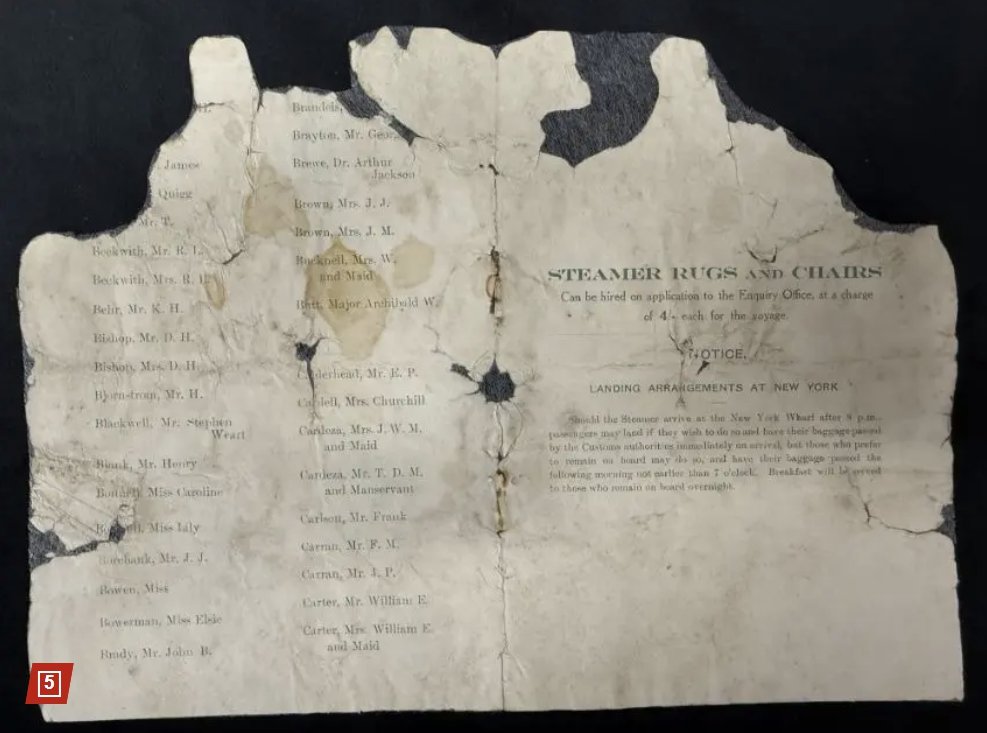 James
Quigg
Mr. T.
Beckwith, Mr. R. L.
Beckwith, Mrs. R. L.
Behr, Mr. K. H.
Bishop, Mr. D. H.
Bishop, Mrs. D. H.
Bjornstrom, Mr. H.
Blackwell, Mr. Stephen
Weart
Blank, Mr. Henry
Bonnell, Miss Caroline
Miss Lily
Borebank, Mr. J. J.
Bowen, Miss
Bowerman, Miss Elsie
Brady, Mr. John B.
Brandeis,
Brayton, Mr.
Brewe, Dr. Arthur
Jackson
Brown, Mrs. J. J.
Brown, Mrs. J. M.
Bucknell, Mrs. W.
and Maid
Butt, Major Archibald W.
Mr. E. P.
Mrs. Churchill
Cardoza, Mrs. J. W. M.
and Maid
Cardeza, Mr. T. D. M.
and Manservant
Carlson, Mr. Frank
Carran, Mr. F. M.
Carran, Mr. J. P.
Carter, Mr. William E.
Carter, Mrs. William E.
and Maid
STEAMER RUGS AND CHAIRS
Can be hired on application to the Enquiry Office, at a charge
of 4/- each for the voyage.
NOTICE.
LANDING ARRANGEMENTS AT NEW YORK
Should the Steamer arrive at the New York Wharf after 8 p.m.,
passengers may land if they wish to do so and have their baggage passed
by the Customs authorities immediately on arrival, but those who prefer
to remain on board may do so, and have their baggage passed the
following morning not earlier than 7 o'clock. Breakfast will be served
to those who remain on board overnight.
5